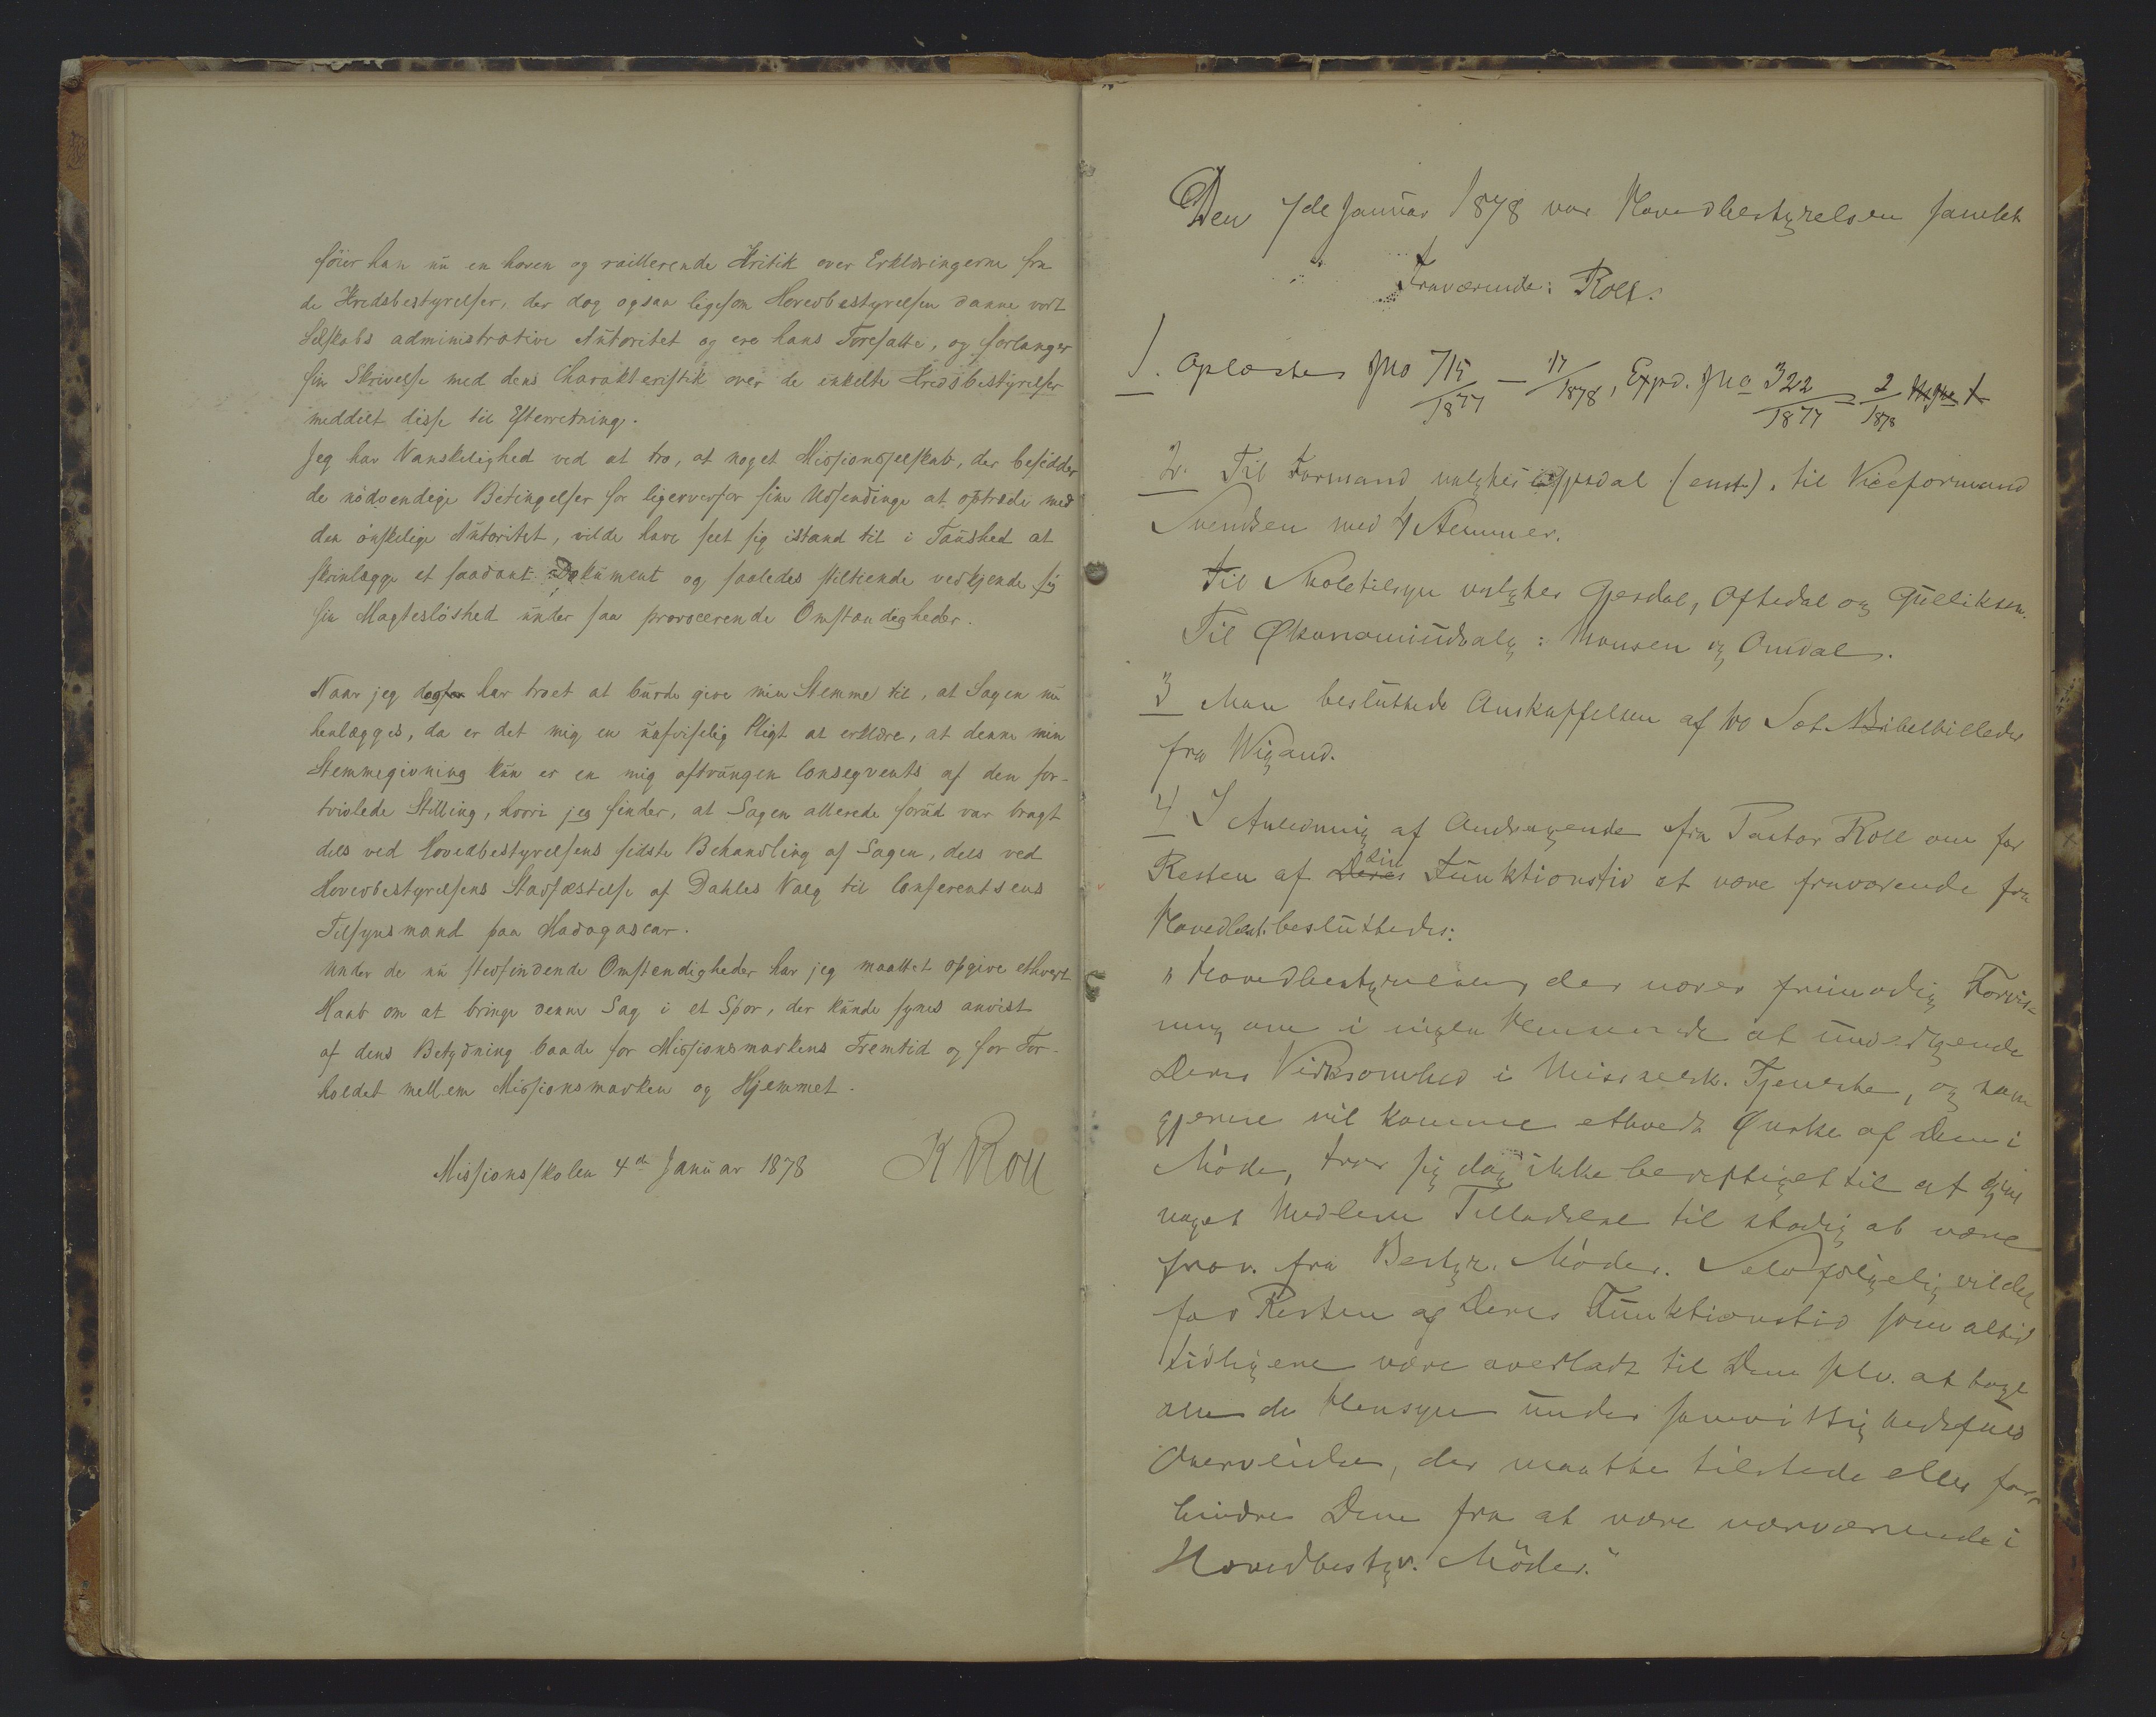 föier han nu en hoven og raillerende Kritik over Erklæringerne fra
de Kredsbestyrelser, der dog ogsaa ligesom Hovedbestyrelsen danne vort
Selskabs administrative Autoritet og ere hans Foresatte, og forlanger
sin Skrivelse med dens Charakteristik over de enkelte Kredsbestyrelser
meddelt disse til Efterretning.
Jeg har Vanskelighed ved at tro, at noget Missionsselskab, der besidder
de nödvendige Betingelser for ligeoverfor sine Udsendinge at optræde med
den önskelige Autoritet, vilde have seet sig istand til i Taushed at
skrinlægge et saadant Dokument og saaledes stiltiende vedkjende sig
sin Magteslöshed under saa provocerende Omstændigheder.
Naar jeg dog har troet at burde give min Stemme til, at Sagen nu
henlægges, da er det mig en uafviselig Pligt at erklære, at denne min
Stemmegivning kun er en mig aftvungen Consequents af den for-
tvivlede Stilling, hvori jeg finder, at Sagen allerede forud var bragt
dels ved Hovedbestyrelsens sidste Behandling af Sagen, dels ved
Hovedbestyrelsens Stadfæstelse af Dahles Valg til Conferentsens
Tilsynsmand paa Madagascar.
Under de nu stedfindende Omstendigheder har jeg maattet opgive ethvert
Haab om at bringe denne Sag i et Spor, der kunde synes anvist
af dens Betydning baade for Missionsmarkens Fremtid og for For-
holdet mellem Missionsmarken og Hjemmet.
Missionsskolen 4de Januar 1878 K Roll
Den 7de Januar 1878 var Hovedbestyrelsen samlet
Fraværende: Roll.
1. Oplæstes Jno 715/1877 – 17/1878, Expd. Jno 322/1877 – 2/1878
2. Til Formand valgtes Gjesdal (enst.), til Viceformand
Svendsen med 4 Stemmer.
Til Skoletilsyn valgtes Gjesdal, Oftedal og Gulliksen.
Til Økonomiudvalg: Monsen og Omdal.
3 Man besluttede Anskaffelsen af to Sæt Bibelbilleder
fra Wigand.
4) I Anledning af Andragende fra Pastor Roll om for
Resten af Deres sin Funktionstid at være fraværende fra
Hovedbest. besluttedes:
"Hovedbestyrelsen, der nærer frimodig Forvis-
ning om i ingen Henseende at undervurdere
Deres Virksomhed i Misselsk. Tjeneste, og som
gjerne vil komme ethvert Ønske af Dem i
Møde, tror sig dog ikke berettiget til at give
noget Medlem Tilladelse til stadig at være
frav. fra Bestyr. Møder. Selvfølgelig vil det
for Resten af Deres Funktionstid som altid
tidligere være overladt til Dem selv. at tage
alle de Hensyn under samvittighedsfuld
Overveielse, der maatte tilstede eller for-
hindre Dem fra at være nærværende i
Hovedbestyr. Møder."